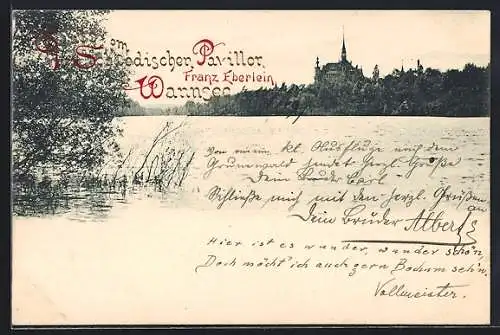 vom
Schwedischen Pavillon
Franz Eberlein
Wannsee
Von einem kl. Ausfluge nach dem
Grunewald sendet herzl. Grüße
Dein Bruder Carl
Schließe mich mit den herzl. Grüßen an
Dein Bruder Albert
Hier ist es wunder, wunder schön,
Doch möcht' ich auch gern Bochum seh'n.
Vollmeister.